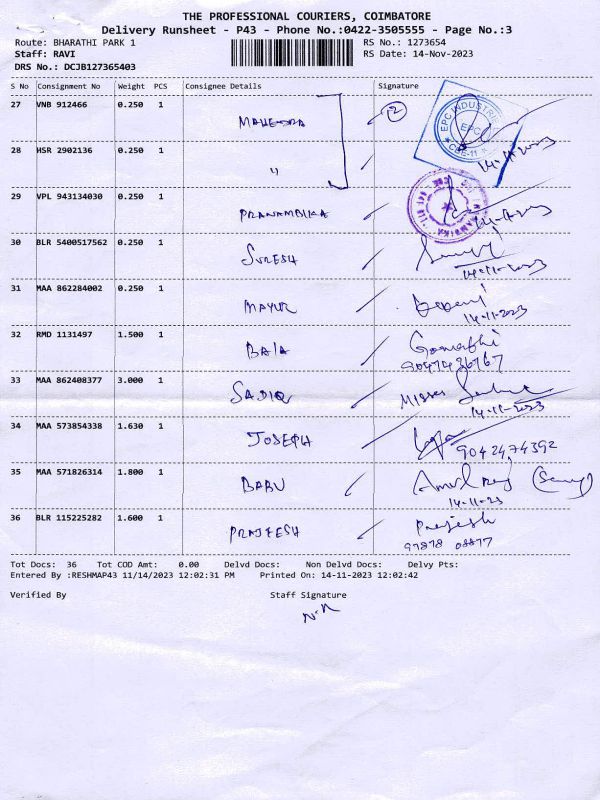 THE PROFESSIONAL COURIERS, COIMBATORE
Delivery Runsheet - P43 - Phone No.:0422-3505555 - Page No.:3
Route: BHARATHI PARK 1 RS No.: 1273654
Staff: RAVI RS Date: 14-Nov-2023
DRS No.: DCJB127365403
S No Consignment No Weight PCS Consignee Details Signature
27 VNB 912466 0.250 1 MAHENDRA 2
EPC INDUSTRI
EPC
CBE-11
14-11-2023
28 HSR 2902136 0.250 1 "
29 VPL 943134030 0.250 1 PRANAMBIKA 14-11-2023
30 BLR 5400517562 0.250 1 SURESH
14-11-2023
31 MAA 862284002 0.250 1 MAYUR
14-11-2023
32 RMD 1131497 1.500 1 BALA Gomathi
9047436767
33 MAA 862408377 3.000 1 SADIQ
14-11-2023
34 MAA 573854338 1.630 1 JOSEPH 9042474392
35 MAA 571826314 1.800 1 BABU
14-11-23
36 BLR 115225282 1.600 1 PRAJEESH Prajesh
97878 08877
Tot Docs: 36 Tot COD Amt: 0.00 Delvd Docs: Non Delvd Docs: Delvy Pts:
Entered By :RESHMAP43 11/14/2023 12:02:31 PM Printed On: 14-11-2023 12:02:42
Verified By Staff Signature